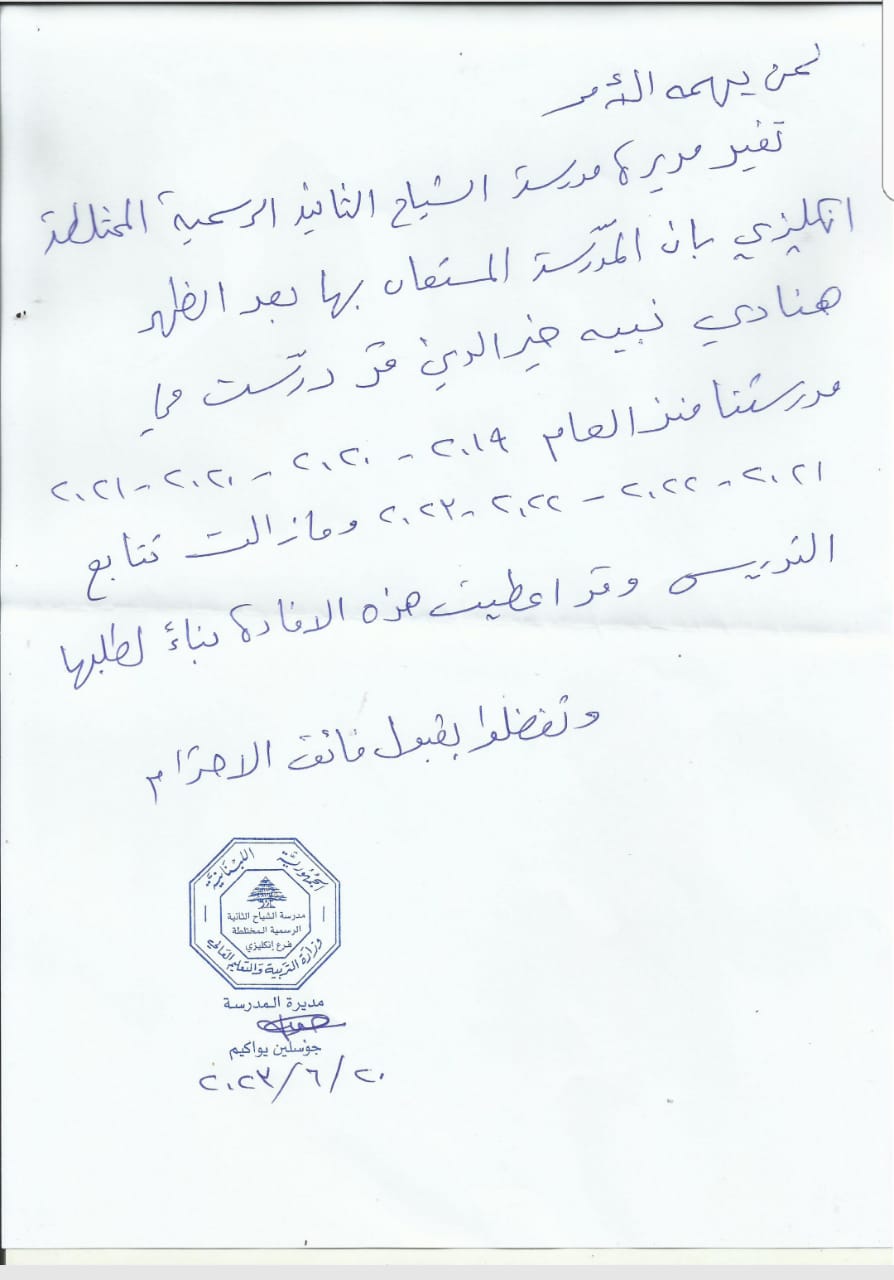 لمن يهمه الأمر
تفيد مديرة مدرسة الشياح الثانية الرسمية المختلطة
انكليزي بان المدّرسة المستعان بها بعد الظهر
هنادي نبيه خير الدين قد درّست في
مدرستنا منذ العام ٢٠١٩ - ٢٠٢٠ - ٢٠٢٠ - ٢٠٢١
٢٠٢١ - ٢٠٢٢ - ٢٠٢٢ - ٢٠٢٣ ومازالت تتابع
التدريس وقد اعطيت هذه الافادة بناءً لطلبها
وتفضلوا بقبول فائق الاحترام
الجمهورية اللبنانية
مدرسة الشياح الثانية
الرسمية المختلطة
فرع إنكليزي
وزارة التربية والتعليم العالي
مديرة المدرسة
جوسلين يواكيم
٢٠٢٣/٦/٢٠